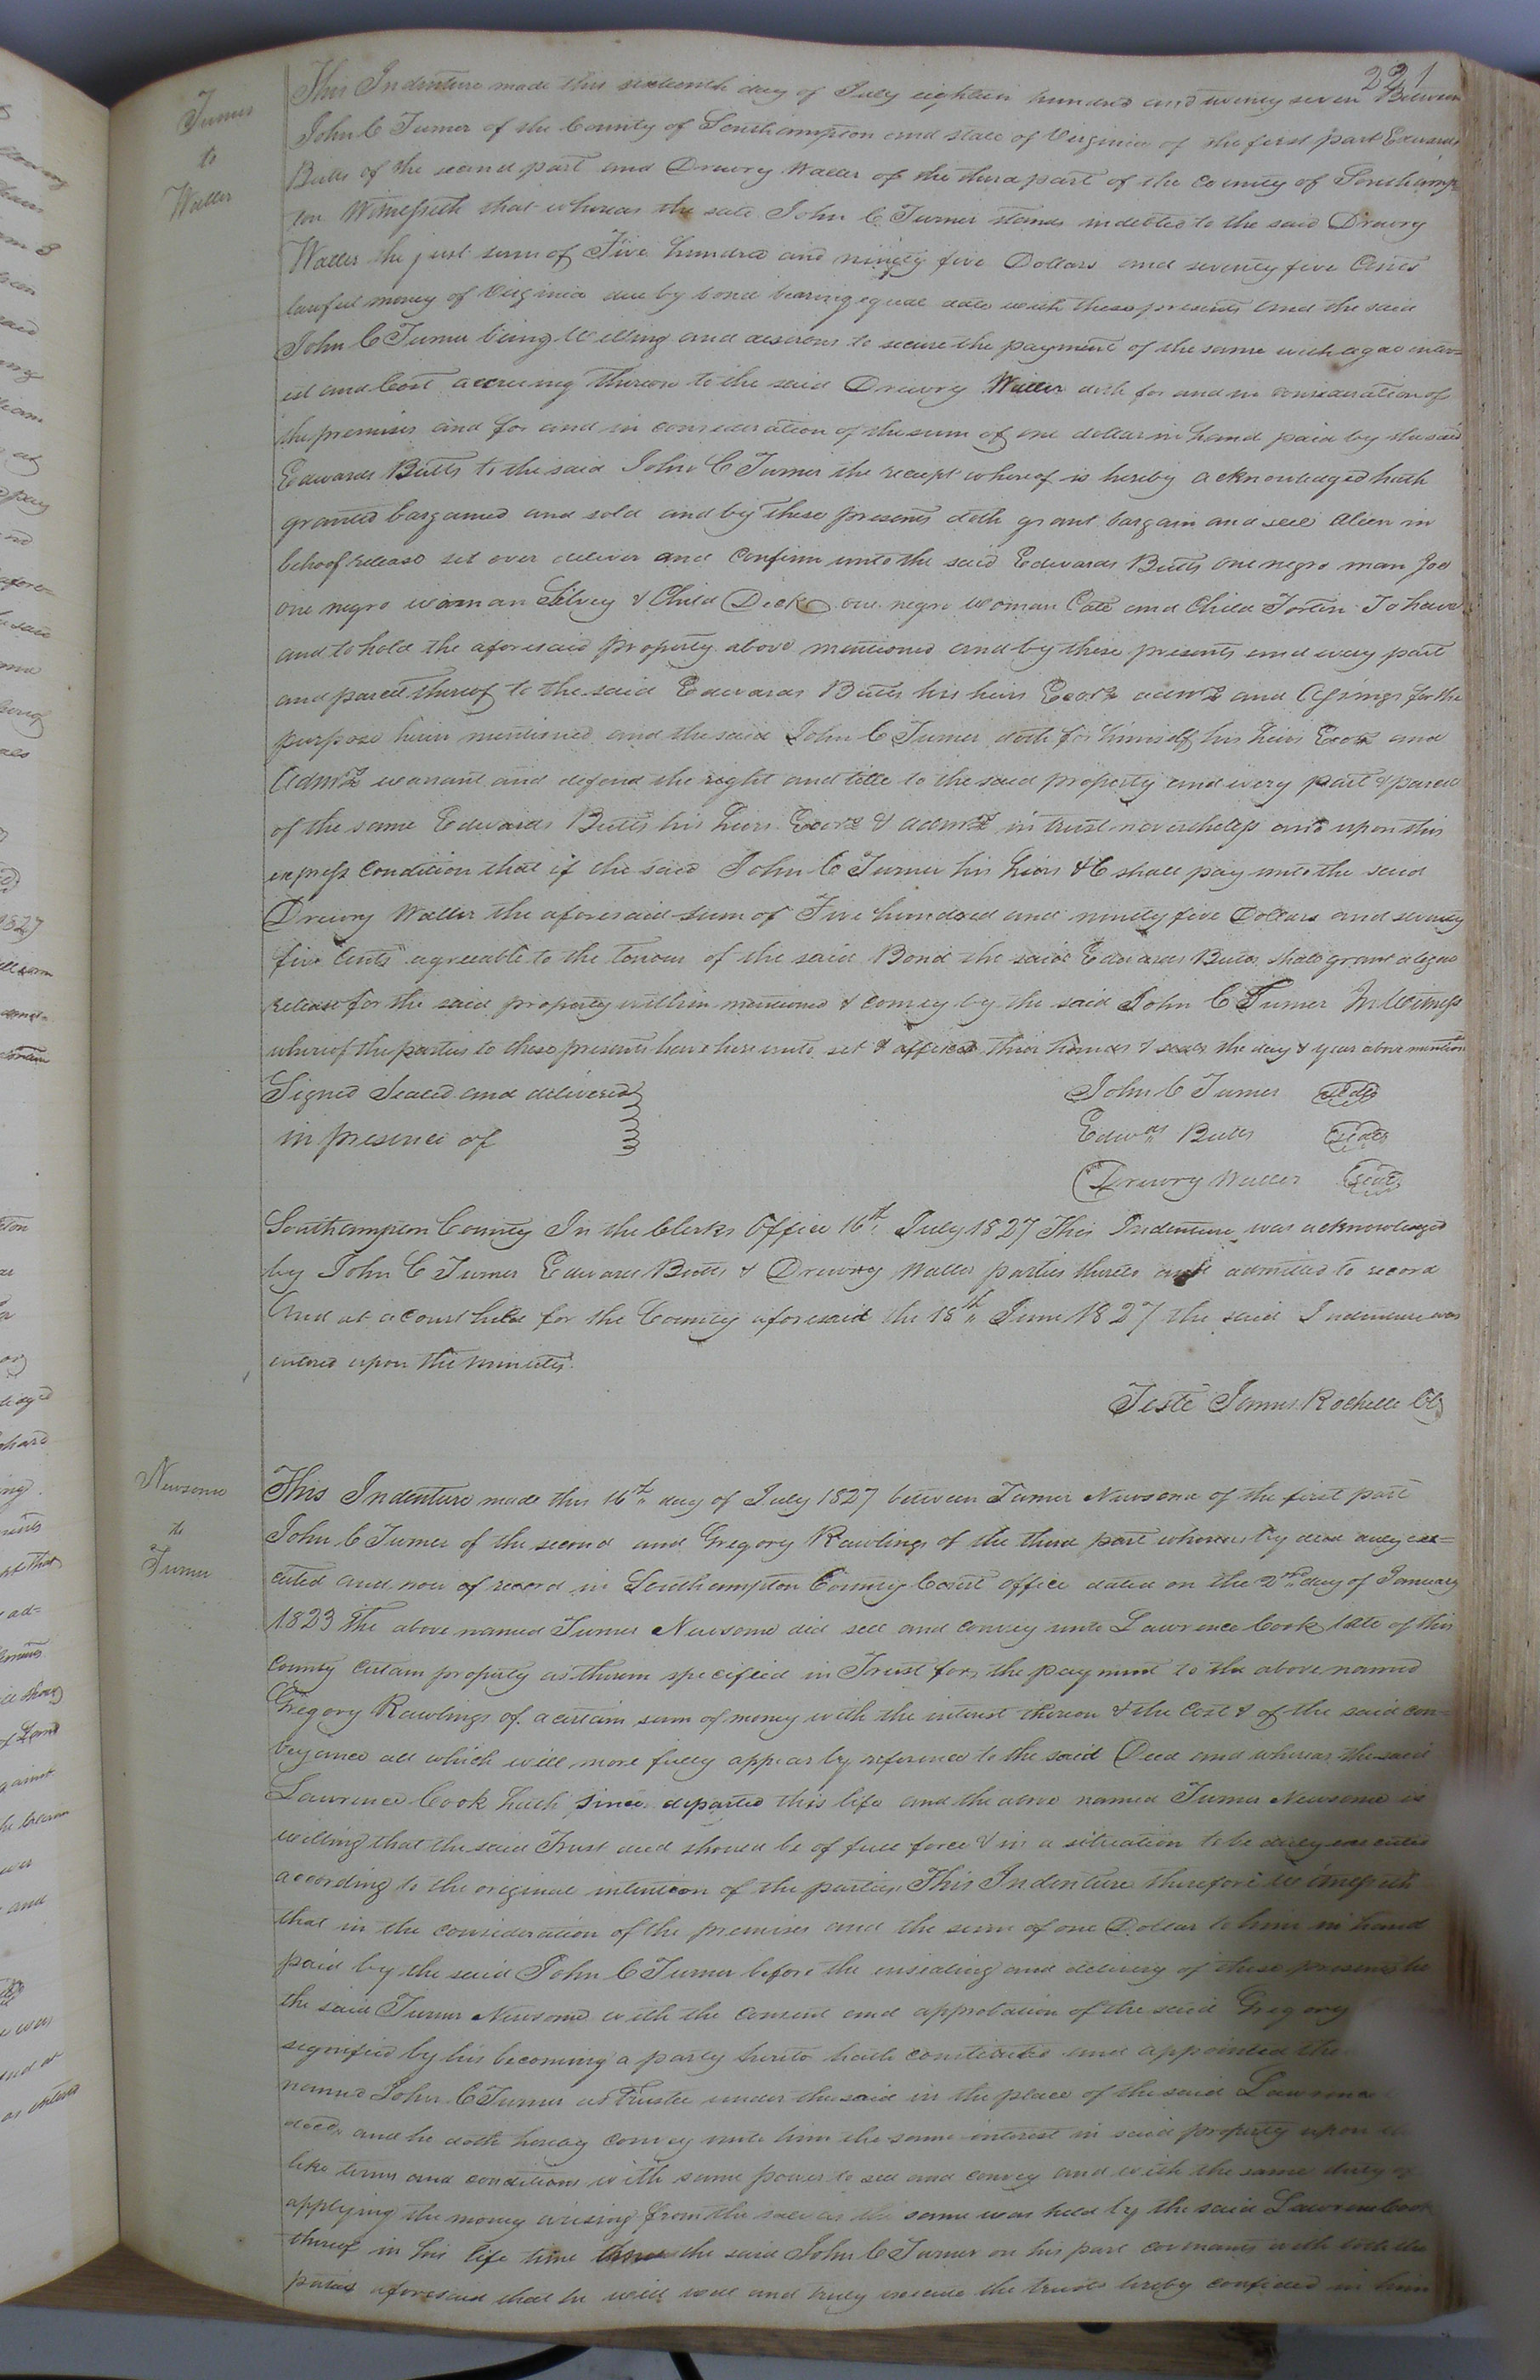 221
Turner
to
Waller
This Indenture made this sixteenth day of July eighteen hundred and twenty seven Between
John C Turner of the County of Southampton and state of Virginia of the first part Edwards
Butts of the second part and Drewry Waller of the third part of the County of Southamp
ton Witnesseth that whereas the said John C Turner stands indebted to the said Drewry
Waller the just sum of Five hundred and ninety five Dollars and seventy five Cents
lawful money of Virginia due by bond bearing equal date with these presents and the said
John C Turner being Willing and desirous to secure the payment of the same with legal inter=
est and Cost accruing thereon to the said Drewry Waller doth for and in consideration of
the premises and for and in consideration of the sum of one dollar in hand paid by the said
Edwards Butts to the said John C Turner the receipt whereof is hereby acknowledged hath
granted bargained and sold and by these presents doth grant bargain and sell alien in
behoof release set over deliver and Confirm unto the said Edwards Butts one negro man Joe
one negro woman Silvey & Child Dick one negro woman Cate and Child To have
and to hold the aforesaid property above mentioned and by these presents and every part
and parcel thereof to the said Edwards Butts his heirs Exors admrs and Assings for the
purpose herein mentioned and the said John C Turner doth for himself his heirs Exors and
Admrs warrant and defend the right and title to the said property and every part & parcel
of the same Edwards Butts his heirs Exors & admrs in trust nevertheless and upon this
express Condition that if the said John C Turner his heirs &C shall pay unto the said
Drewry Waller the aforesaid sum of Five hundred and ninety five Dollars and seventy
five Cents agreeable to the tenour of the said Bond the said Edwards Butts shall grant a legal
release for the said property within mentioned & convey by the said John C Turner In Witness
whereof the parties to these presents have here unto set & affixed their hands & seals the day & year above mention
Signed Sealed and delivered
in presence of
John C Turner seal
Edwds Butts seal
Drewry Waller seal
Southampton County In the Clerks Office 16th July 1827 This Indenture was acknowledged
by John C Turner Edwards Butts & Drewry Waller parties thereto and admitted to record
And at a Court held for the County aforesaid the 18th June 1827 the said Indenture was
entered upon the minutes.
Teste James Rochelle Clk
Newsome
to
Turner
This Indenture made this 16th day of July 1827 between Turner Newsome of the first part
John C Turner of the second and Gregory Rawlings of the third part whereas by deed duly exe=
cuted and now of record in Southampton County Court office dated on the 2nd day of January
1823 the above named Turner Newsome did sell and convey unto Lawrence Cook late of this
County certain property as therein specified in Trust for the payment to the above named
Gregory Rawlings of a certain sum of money with the interest thereon & the Cost & of the said con=
veyance all which will more fully appear by reference to the said Deed and whereas the said
Lawrence Cook hath since departed this life and the above named Turner Newsome is
willing that the said Trust deed should be of full force & in a situation to be duly executed
according to the original intention of the parties This Indenture therefore Witnesseth
that in the consideration of the premises and the sum of one Dollar to him in hand
paid by the said John C Turner before the ensealing and delivery of these presents he
the said Turner Newsome with the consent and approbation of the said Gregory
signified by his becoming a party hereto hath constituted and appointed the
named John C Turner as Trustee under the said in the place of the said Lawrence
decd. and he doth hereby convey unto him the same interest in said property upon the
like terms and conditions with same power to sell and convey and with the same duty of
applying the money arising from the sale as the same was held by the said Lawrence Cook
thereof in his life time the said John C Turner on his part covenants with both the
parties aforesaid that he will well and truly execute the trusts hereby confided in him